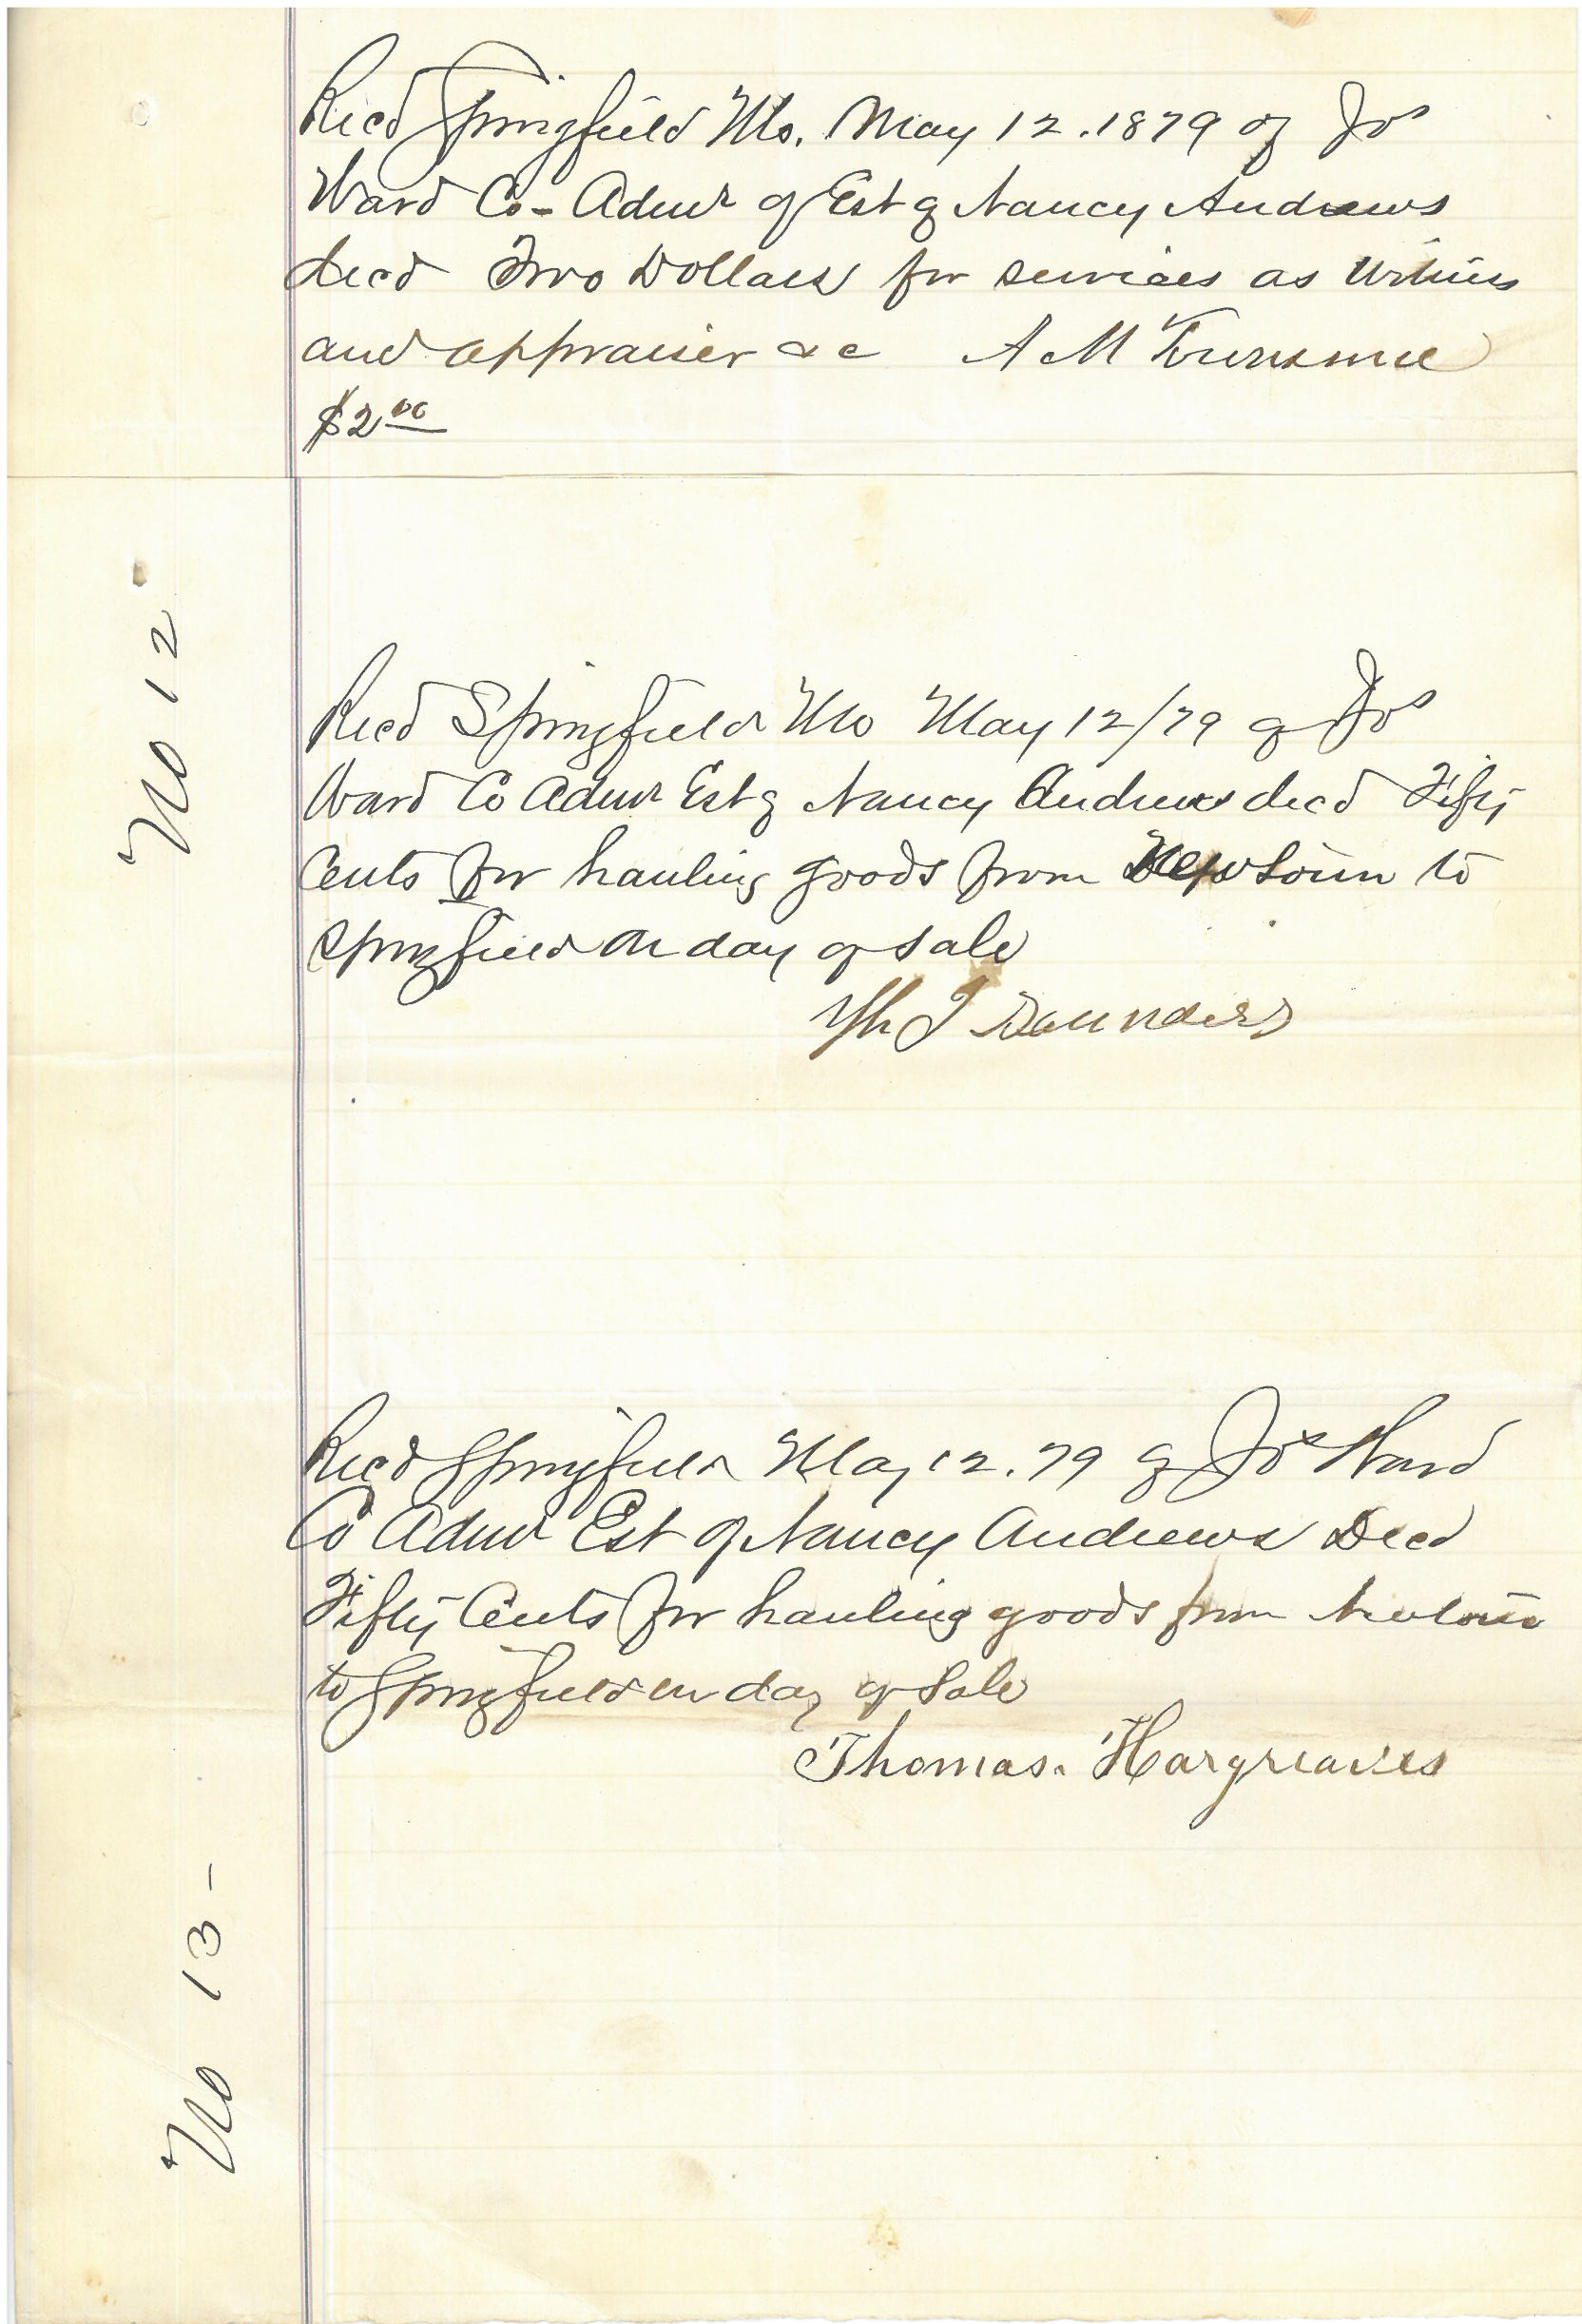 Recd Springfield Mo. May 12. 1879 of Jos
Ward Co-Admr of Est of Nancy Andrews
decd Two Dollars for services as Witness
and appraiser &c A M
$2 00
No 12
Recd Springfield Mo May 12/79 of Jos
Ward Co Admr Est of Nancy Andrews decd Fifty
Cents for hauling goods from Newtown to
Springfield on day of sale
J Saunders
Recd Springfield May 12. 79 of Jos Ward
Co Admr Est of Nancy Andrews Decd
Fifty Cents for hauling goods from
to Springfield on day of Sale
Thomas. Hargreaves
No 13-